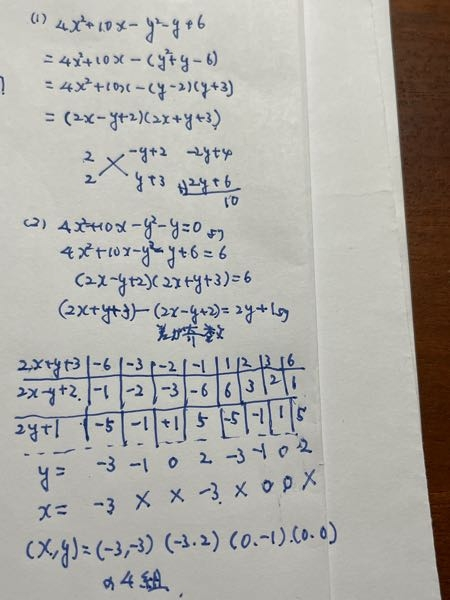 (1) 4x²+10x-y²-y+6
=4x²+10x-(y²+y-6)
=4x²+10x-(y-2)(y+3)
=(2x-y+2)(2x+y+3)
2 -y+2 -2y+4
2 y+3 +) 2y+6
10
(2) 4x²+10x-y²-y=0 より
4x²+10x-y²-y+6=6
(2x-y+2)(2x+y+3)=6
(2x+y+3)-(2x-y+2)=2y+1より
差は奇数
2x+y+3 -6 -3 -2 -1 1 2 3 6
2x-y+2 -1 -2 -3 -6 6 3 2 1
2y+1 -5 -1 +1 5 -5 -1 1 5
y= -3 -1 0 2 -3 -1 0 2
x= -3 × × -3 × 0 0 ×
(x,y)=(-3,-3) (-3.2) (0.-1).(0.0)
の4組